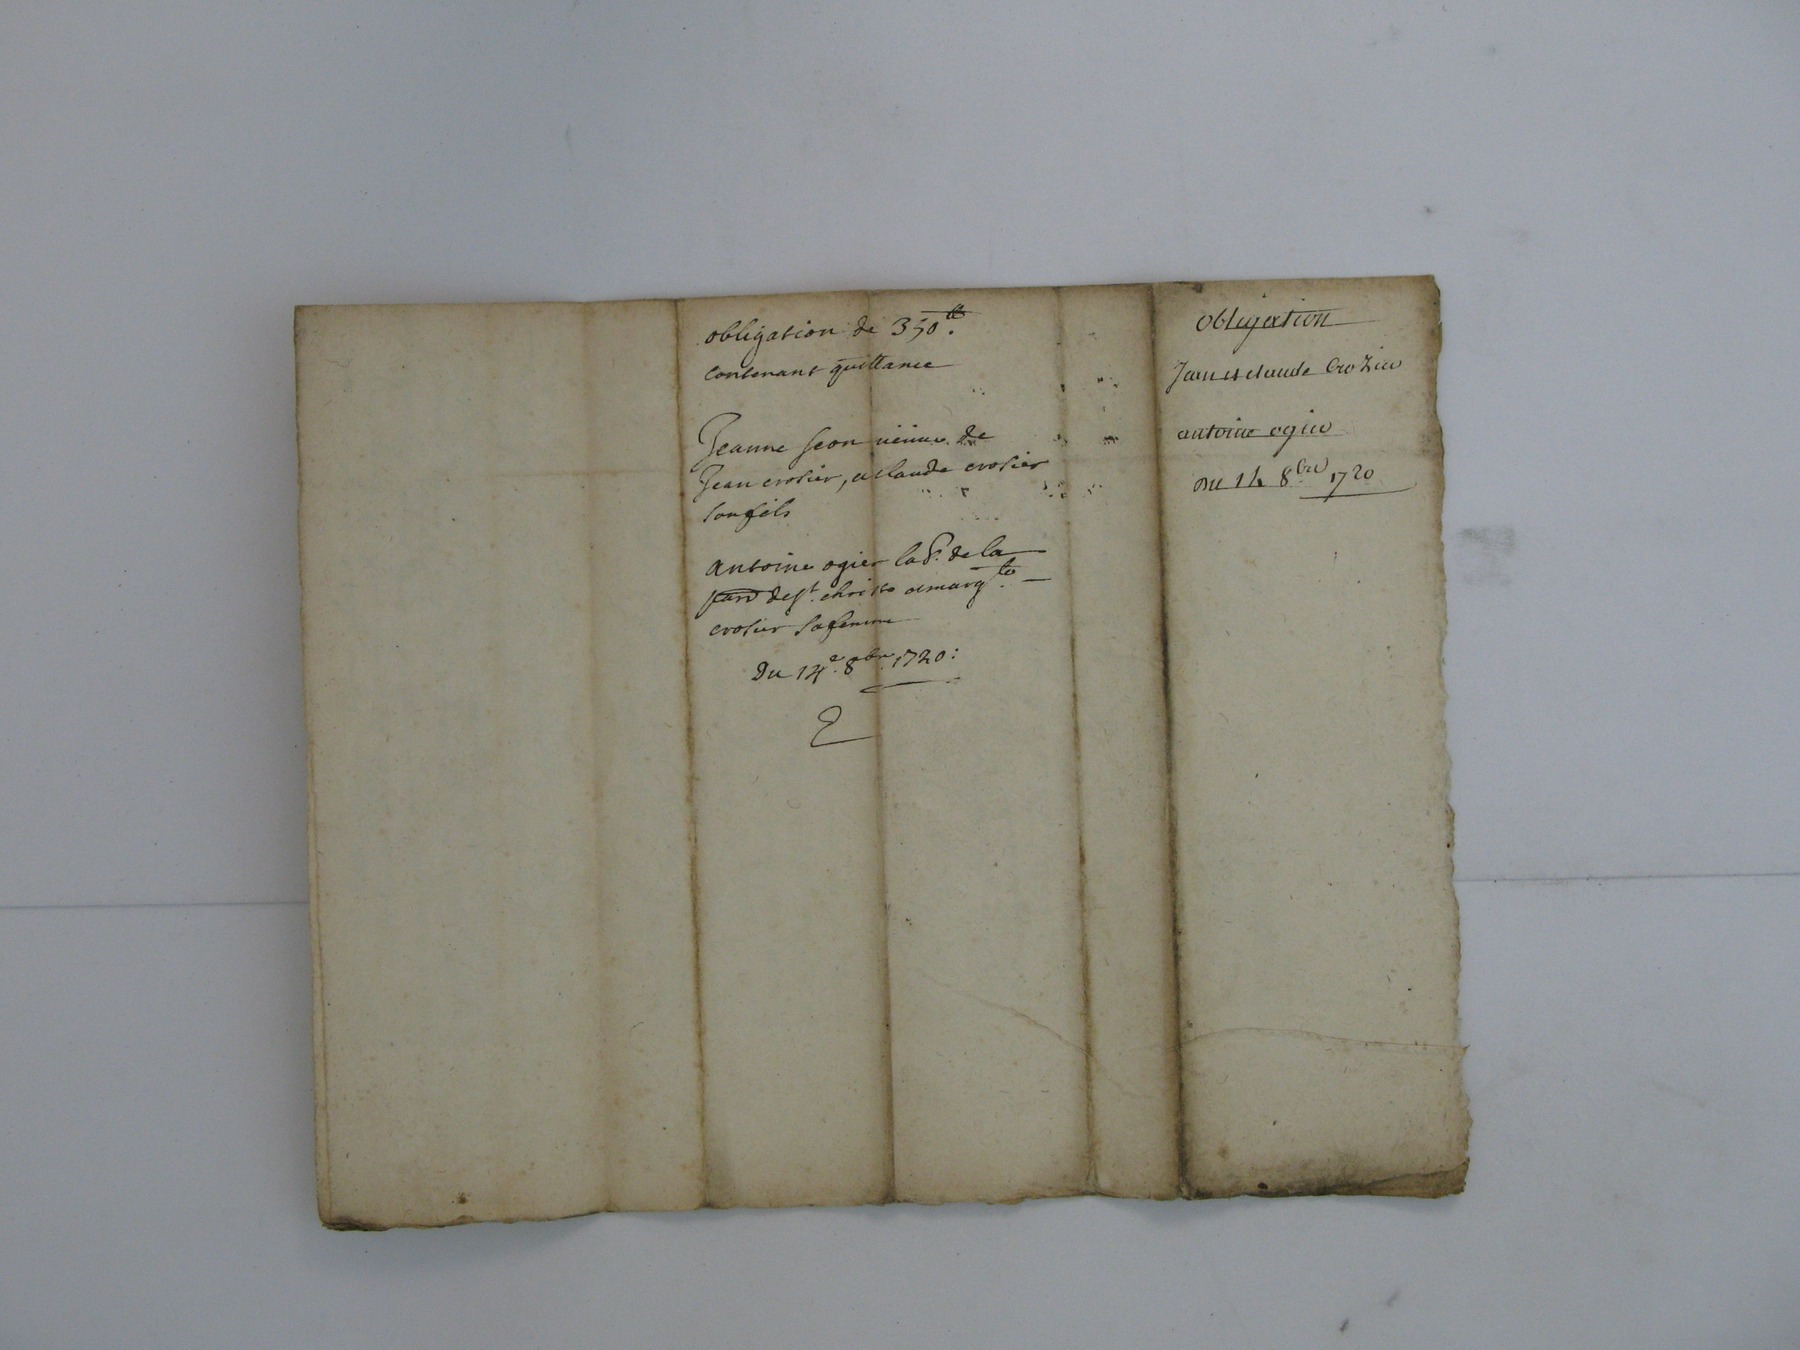 obligation de 350.tt
contenant quittance
Jeanne Jeon veuve de
Jean crosier, et claude crosier
son fils
antoine ogier lab.r de la
parr de st. christo et marg.te
crosier sa femme
Du 14.e 8bre 1720:
obligation
Jean et claude Crozier
antoine ogier
Du 14 8bre 1720